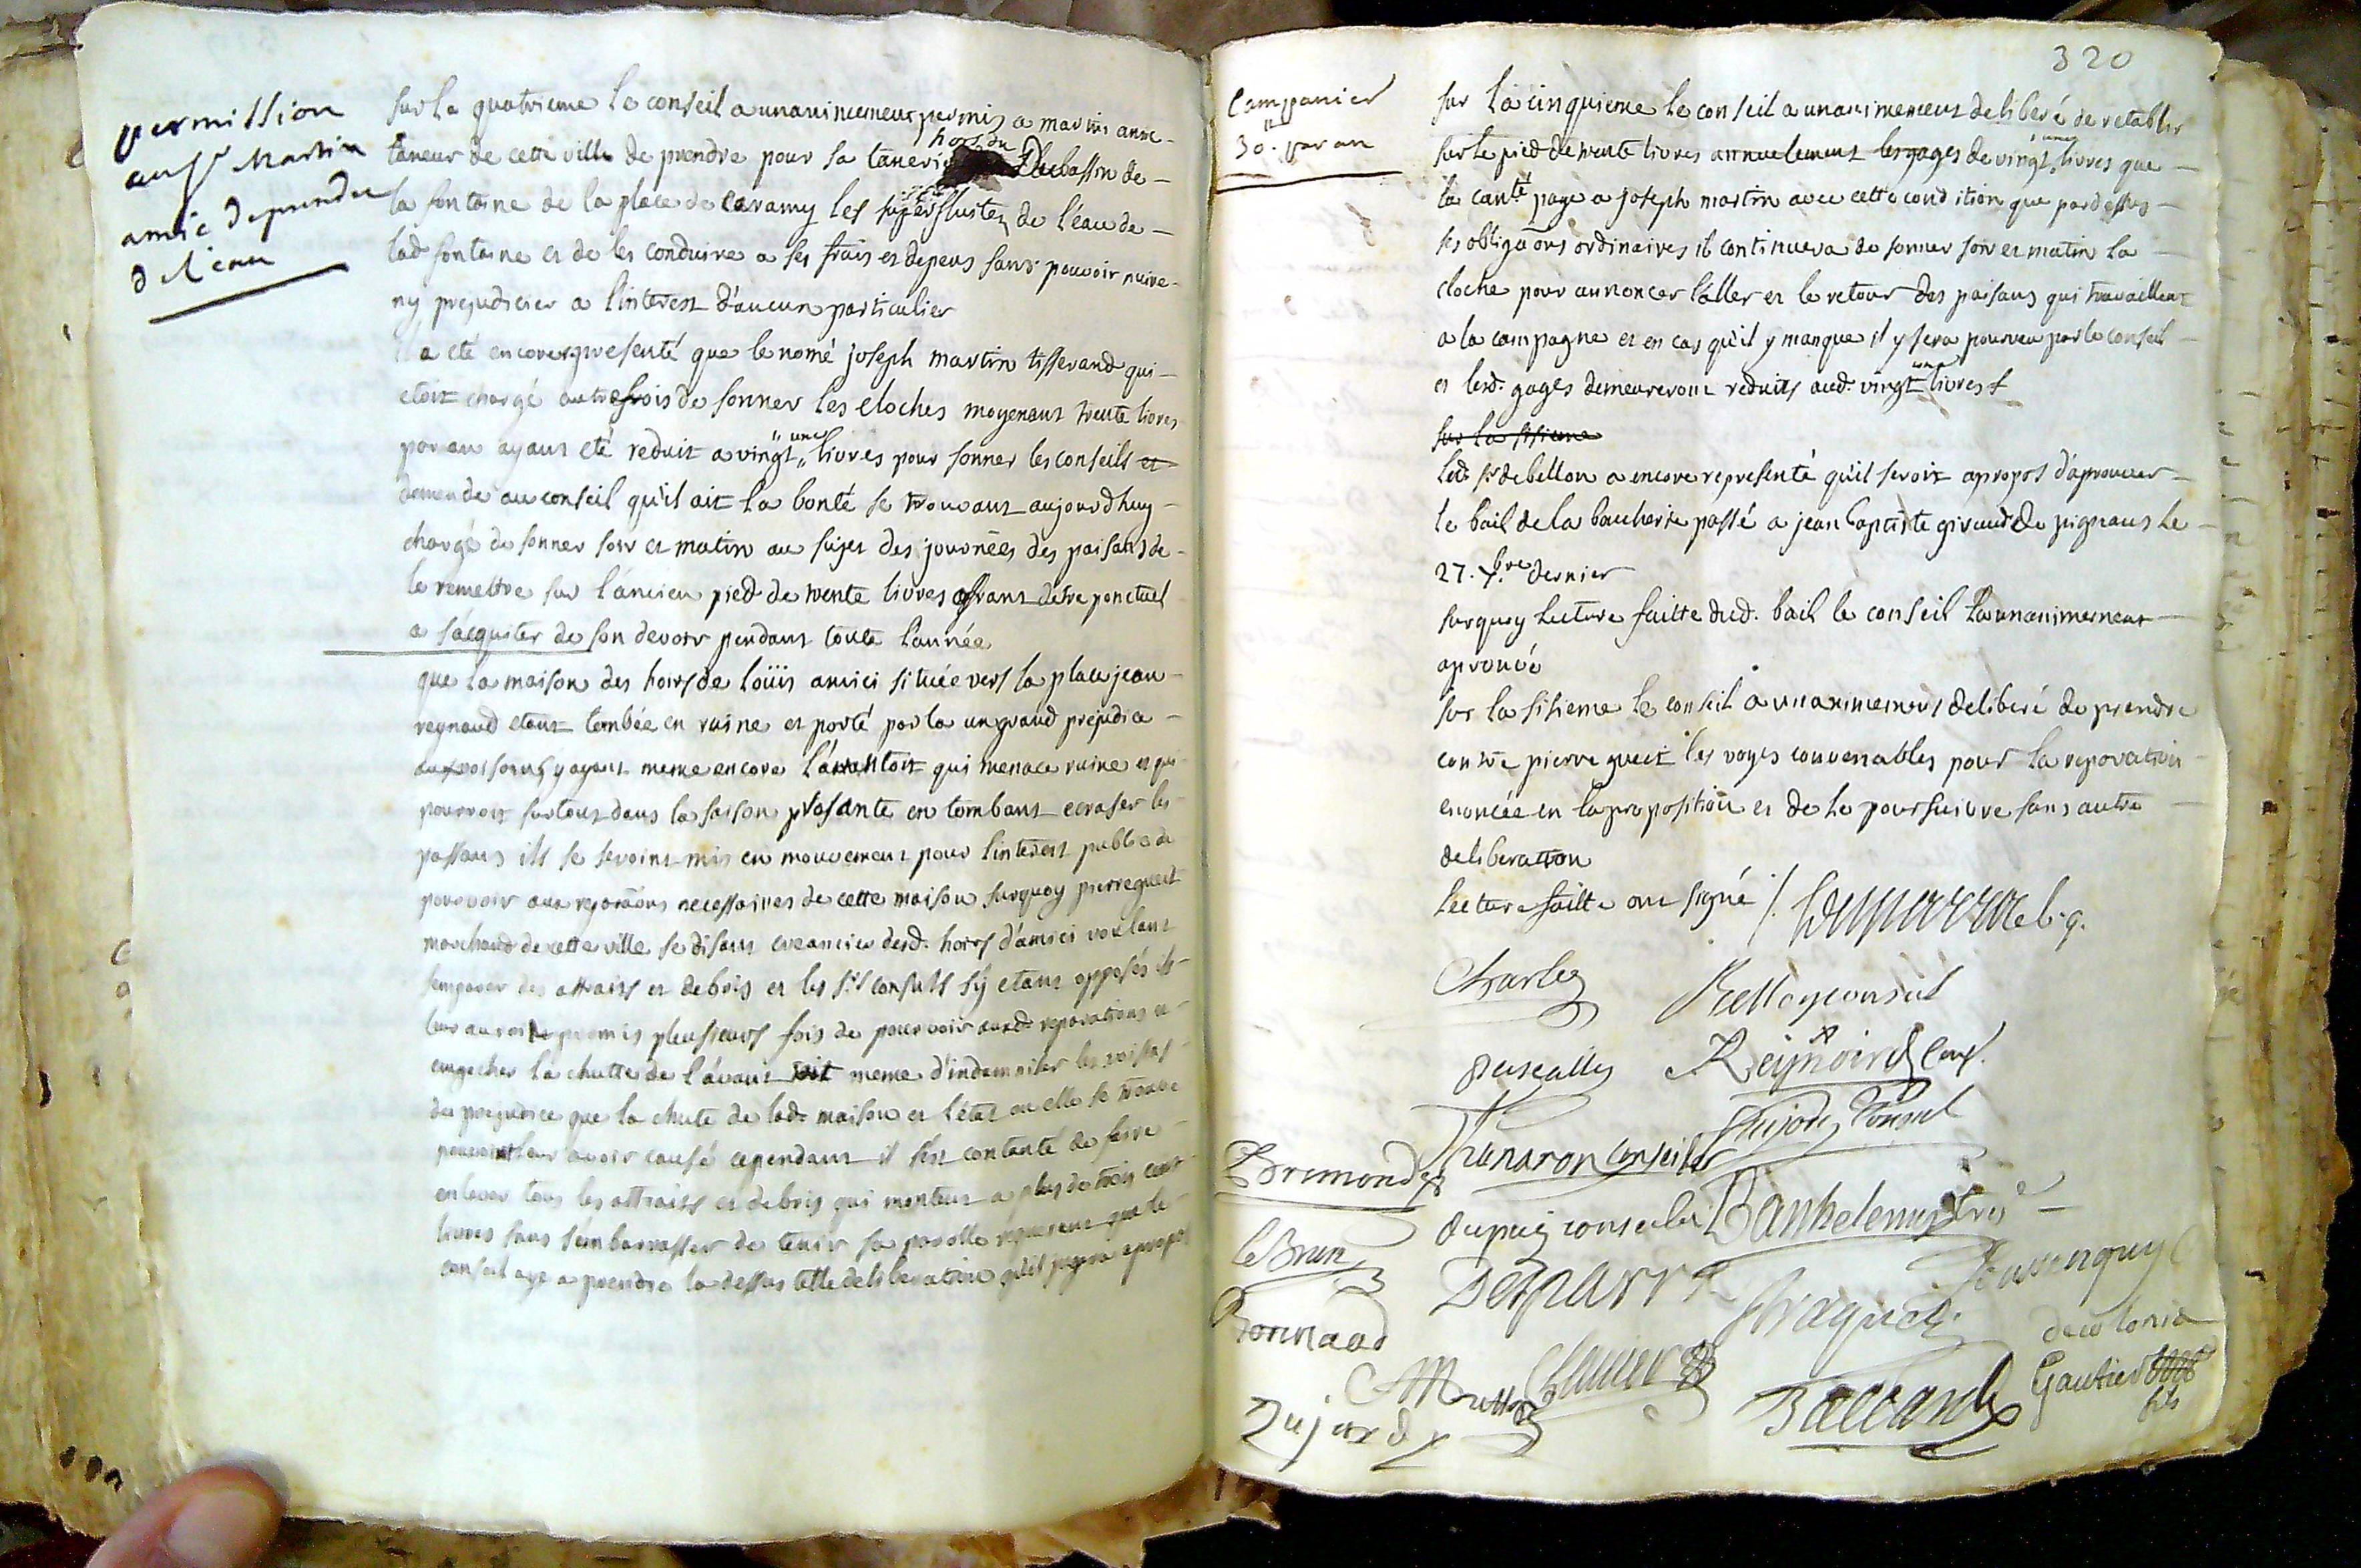 permission
au sr Martin
amic de prendre
de l'eau
sur la quatrieme le conseil a unanimement permis a martin amic
taneur de cette ville de prendre pour sa tanerie hors du du bassin de
la fontaine de la place de Caramy les superfluites de l'eau de
lad. fontaine et de les conduire a ses frais et depens sans pouvoir nuire
ny prejudicier a l'interest d'aucun particulier
a eté encore representé que le nomé joseph martin tisserand qui
etoit chargé autrefois de sonner les cloches moyenant trente livres
par an ayant eté reduit a vingt une livres pour sonner les conseils et
demande au conseil qu'il ait la bonté se trouvant aujourdhuy
chargé de sonner soir et matin au sujet des journées des paisans de
le remettre sur l'ancien pied de trente livres ofrant detre ponctuel
a s'acquiter de son devoir pendant toute l'année
que la maison des hoirs de loüis amici située vers la place jean
reynaud etant tombée en ruine et porté par la un grand prejudice
aux voisons y ayant meme encore l'avantoit qui menace ruine et qui
pourroit surtout dans la saison presante en tombant ecraser les
passans ils se seroint mis en mouvement pour l'interest public de
pourvoir aux reparaons necessaires de cette maison surquoy pierre gueit
marchand de cette ville se disant creancier desd. hoirs d'amici voulant
semparer des attraits et debris et les srs consuls s'y etant opposés ils
leur auroit promis plusieurs fois de pourvoir auxd. reparations et
empecher la chutte de l'avant toit meme d'indemniser les voisins
du prejudice que la chute de lad. maison et l'état ou elle se trouve
pouvoit leur avoir causé cependant il s'est contanté de faire
enlever tous les attraits et debris qui montent a plus de trois cent
livres sans s'embarrasser de tenir sa parolle requerant que le
conseil aye a prendre la dessus telle deliberation qu'il jugera apropos
320
Campanier
30 ll par an
sur la cinquieme le conseil a unanimement deliberé de retablir
sur le pied de trente livres annuelement les gages de vingt une livres que
la canté paye a joseph martin avec cette condition que pardessus
ses obligaons ordinaires il continuera de sonner soir et matin la
cloche pour annoncer l'aller et le retour des paisans qui travaillent
a la campagne et en cas qu'il y manque il y sera pourveu par le conseil
et lesd. gages demeureront reduits aud. vingt une livres
sur la sisieme
led. sr de bellon a encore representé qu'il seroit apropos d'aprouver
le bail de la boucherie passé a jean baptiste giraud de pignans le
27. xbre dernier
surquoy lecture faitte dud. bail le conseil l'a unanimement
aprouvé
sur la sisieme le conseil a unanimement deliberé de prendre
contre pierre gueit les voyes convenables pour la reparation
enoncée en la proposition et de le poursuivre sans autre
deliberation
lecture faitte ont signé
Charles
Bellon consul
pascallis
Reynoird cons.
Thanaron conseiller
Pujade Consul
Bremond
dupuy conseiller
Barthelemy
le Brun
Desparra
Jouvenguy
Bonnaud
Fraguier
decolonia
Mutto
Gautier
fils
Dujard
Baccard